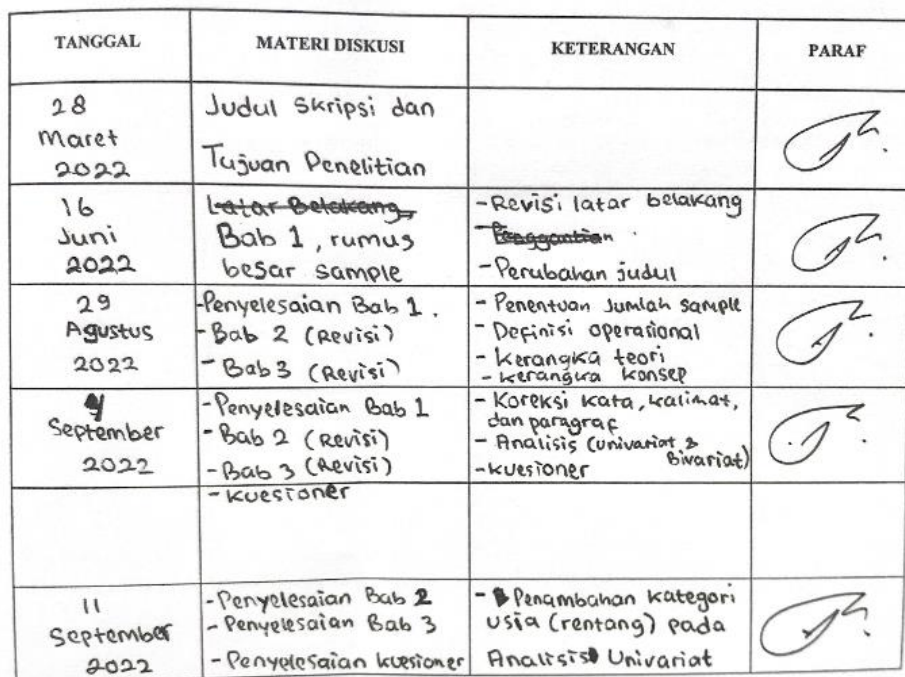 TANGGAL MATERI DISKUSI KETERANGAN PARAF
28
Maret
2022
Judul Skripsi dan
Tujuan Penelitian
16
Juni
2022
Latar Belakang,
Bab 1, rumus
besar sample
- Revisi latar belakang
- Penggantian
- Perubahan judul
29
Agustus
2022
- Penyelesaian Bab 1.
- Bab 2 (Revisi)
- Bab 3 (Revisi)
- Penentuan Jumlah sample
- Definisi operasional
- Kerangka teori
- kerangka konsep
September
2022
- Penyelesaian Bab 1
- Bab 2 (Revisi)
- Bab 3 (Revisi)
- kuesioner
- Koreksi kata, kalimat,
dan paragraf
- Analisis (univariat &
Bivariat)
- kuesioner
11
September
2022
- Penyelesaian Bab 2
- Penyelesaian Bab 3
- Penyelesaian kuesioner
- Penambahan kategori
usia (rentang) pada
Analisis Univariat